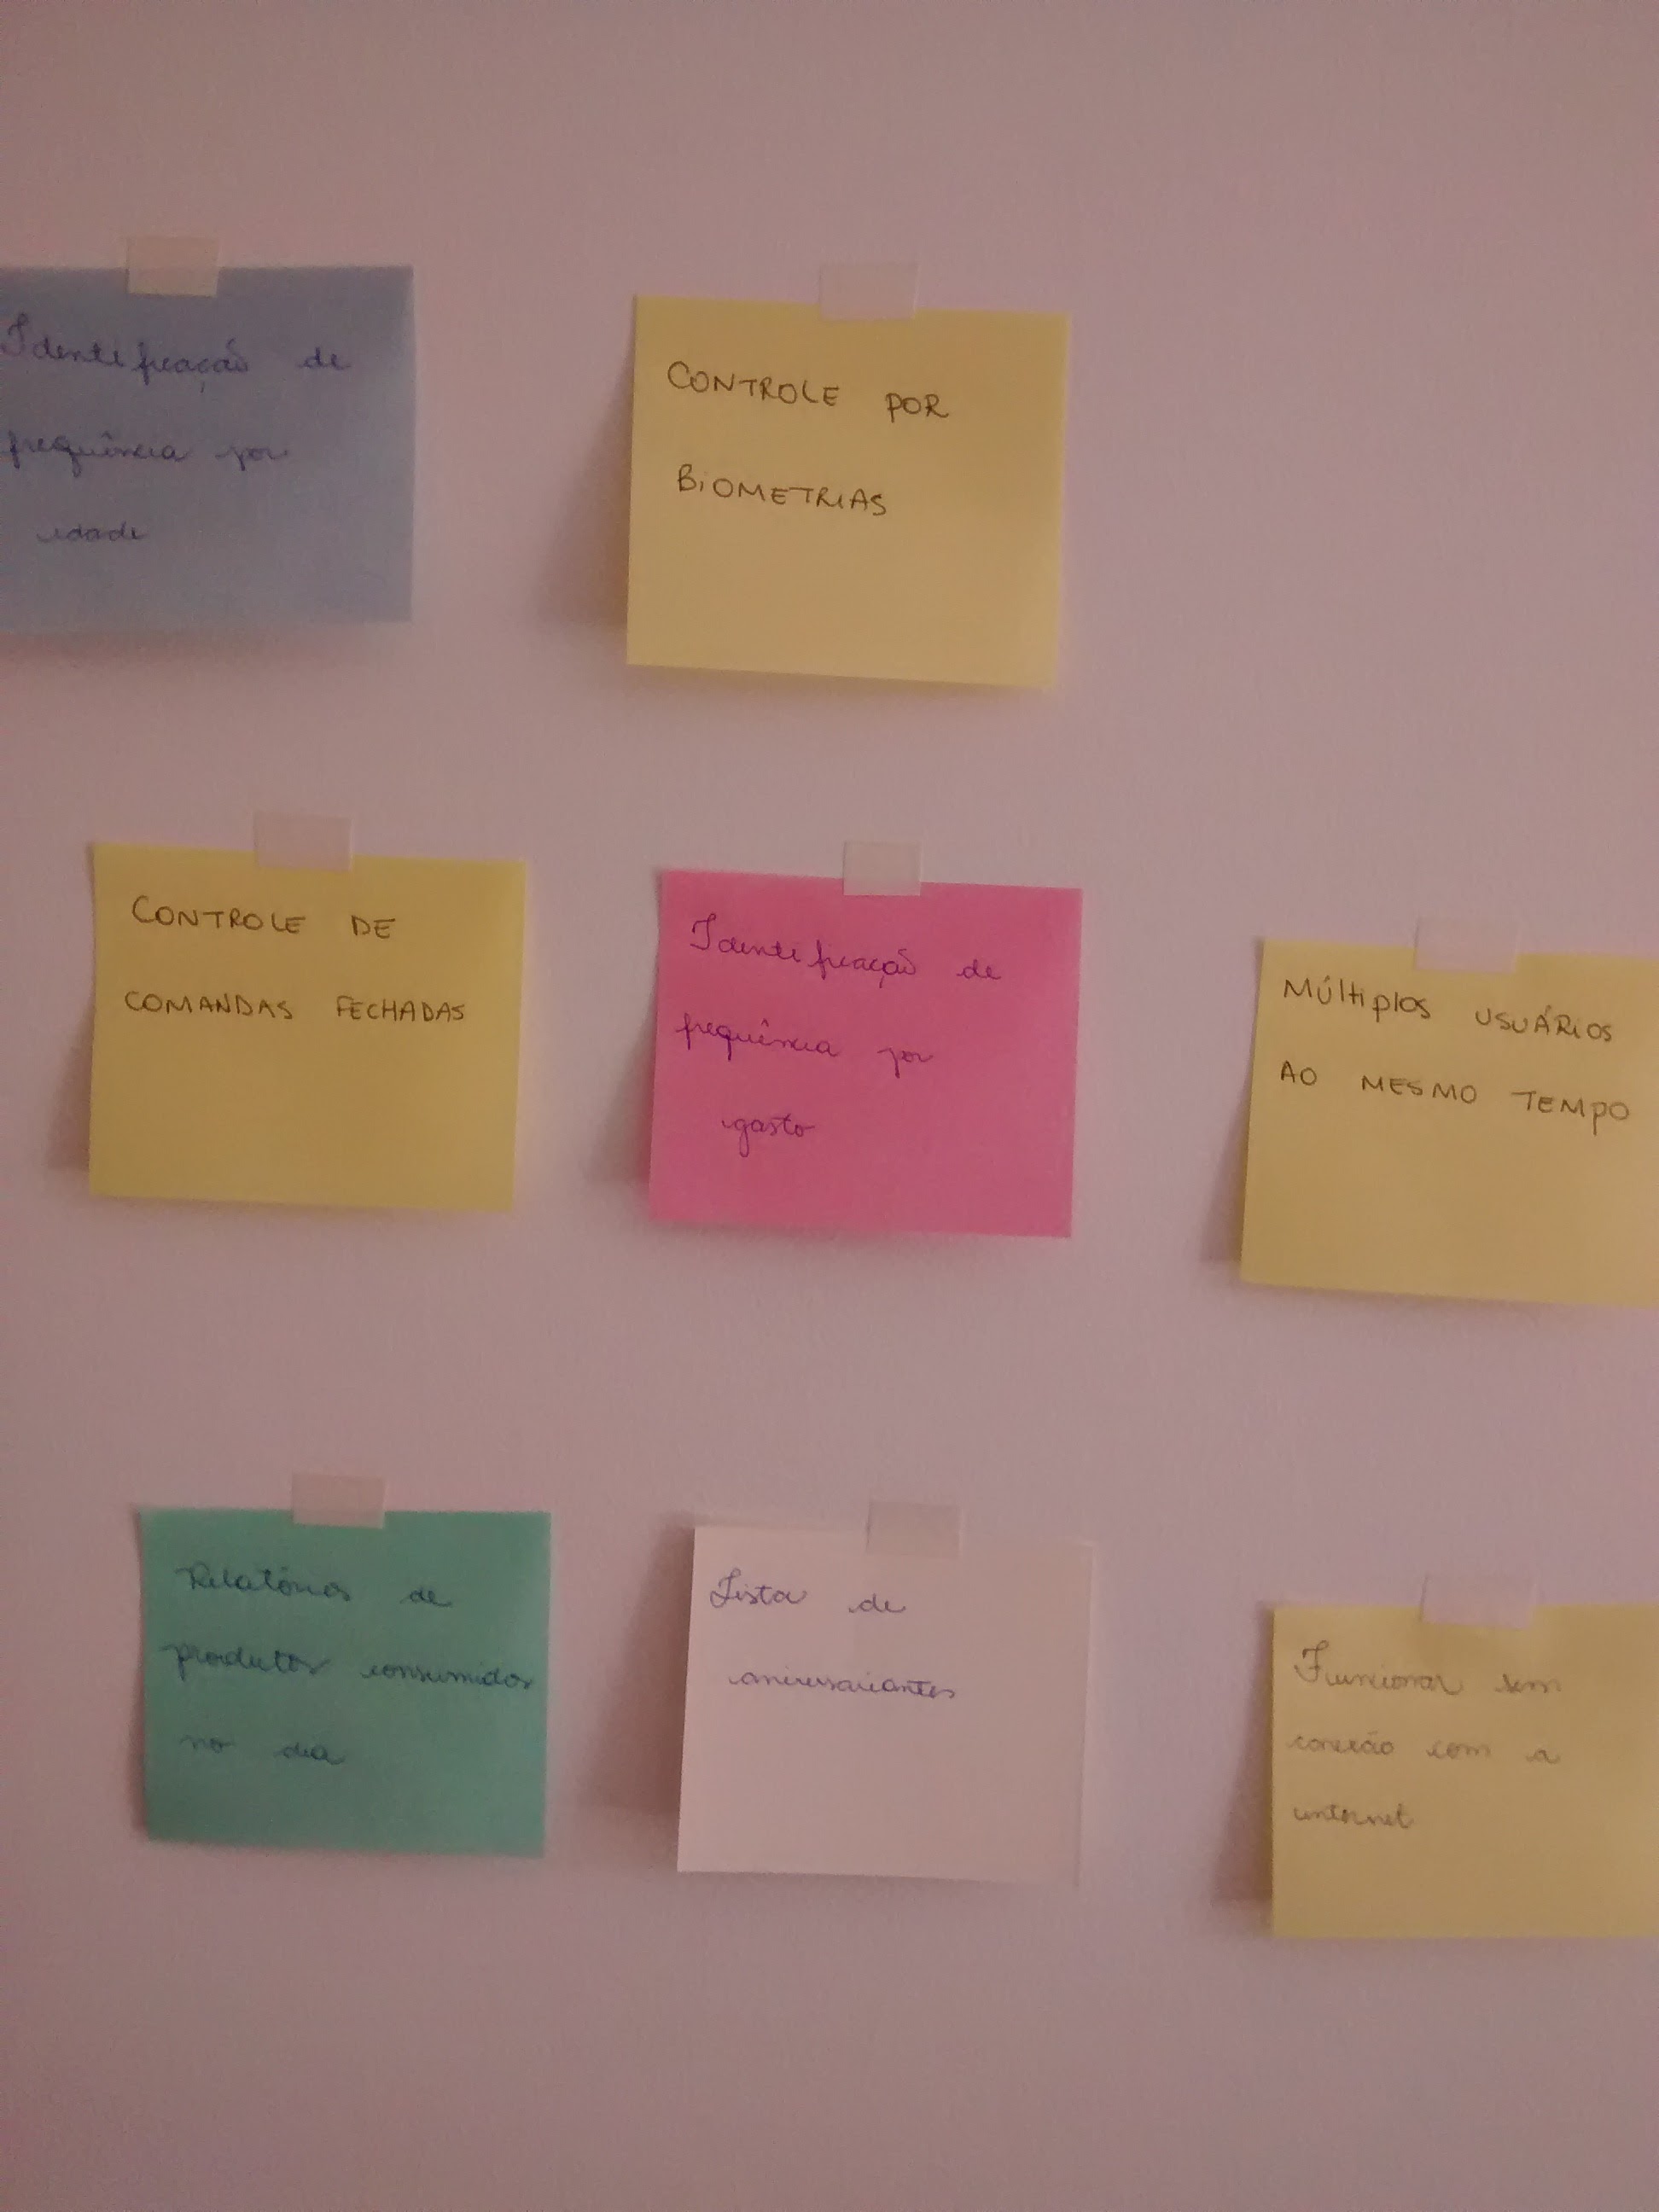 Identificação de
frequência por
idade
CONTROLE POR
BIOMETRIAS
CONTROLE DE
COMANDAS FECHADAS
Identificação de
frequência por
gasto
MÚltiplos USUÁRIOS
AO MESMO TEMPO
Relatórios de
produtos consumidos
no dia
Lista de
aniversariantes
Funcionar sem
conexão com a
internet